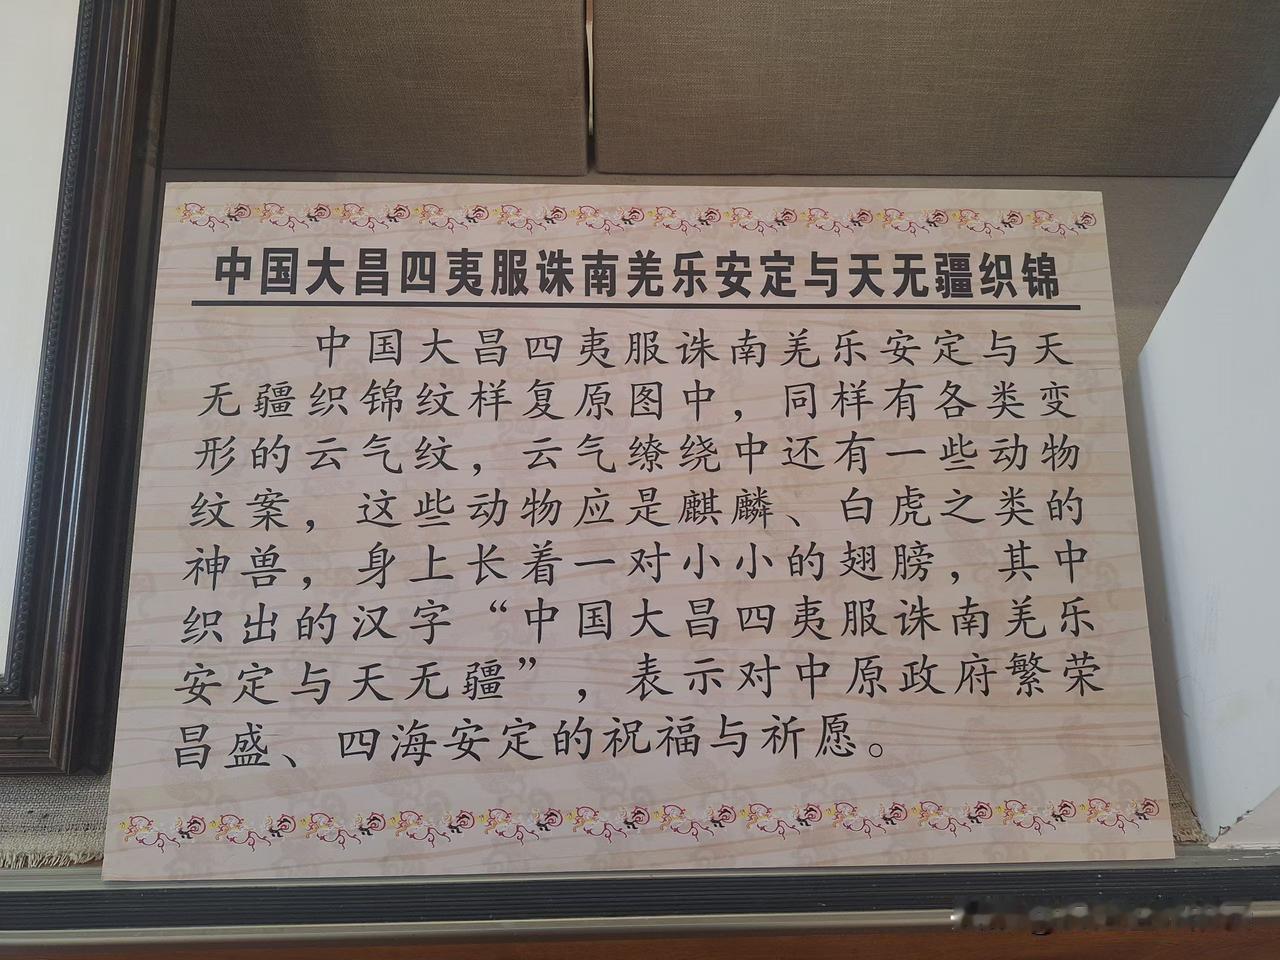 中国大昌四夷服诛南羌乐安定与天无疆织锦
中国大昌四夷服诛南羌乐安定与天
无疆织锦纹样复原图中，同样有各类变
形的云气纹，云气缭绕中还有一些动物
纹案，这些动物应是麒麟、白虎之类的
神兽，身上长着一对小小的翅膀，其中
织出的汉字“中国大昌四夷服诛南羌乐
安定与天无疆”，表示对中原政府繁荣
昌盛、四海安定的祝福与祈愿。